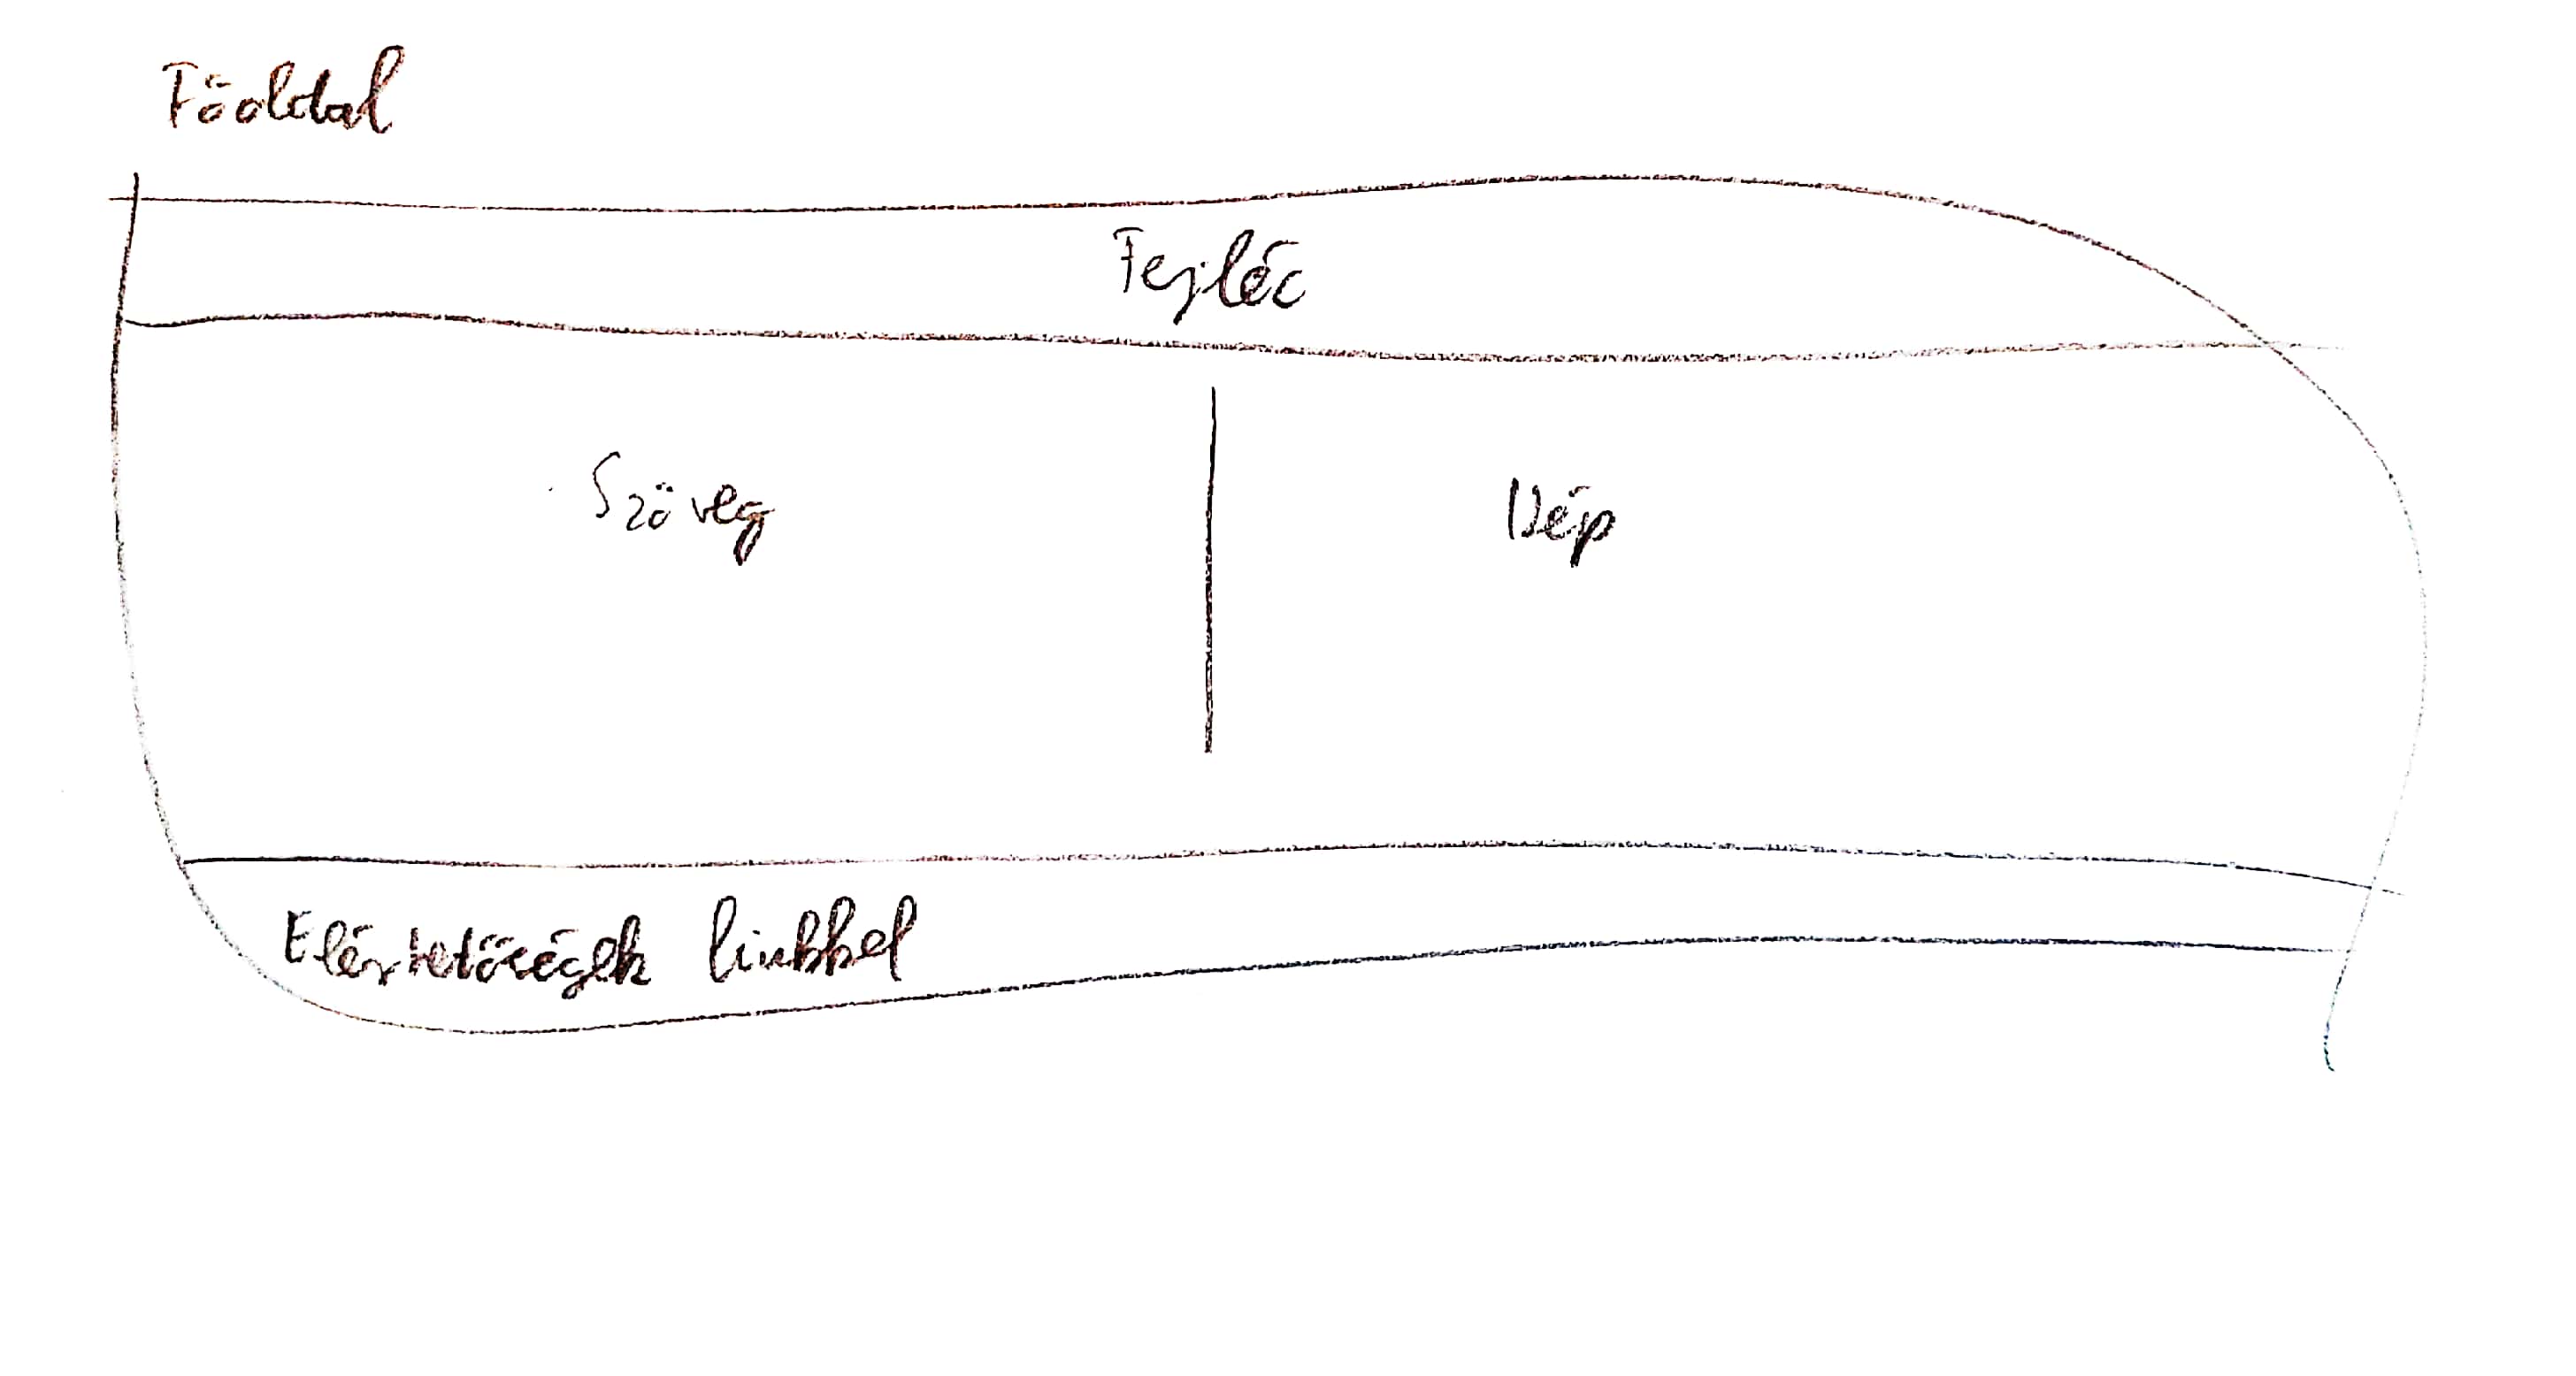 Főoldal
Fejléc
Szöveg
Kép
Elérhetőségek linkkel